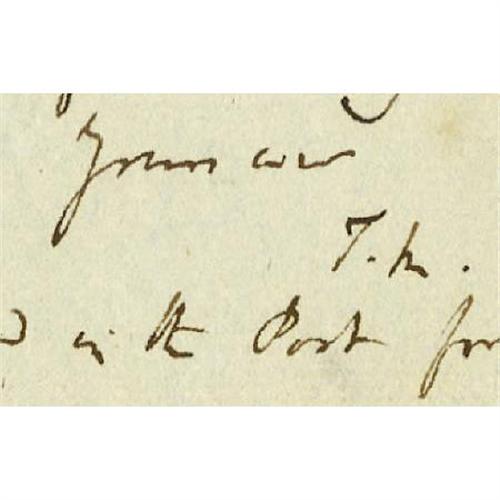 Yours ever
T. M.
in the Post for